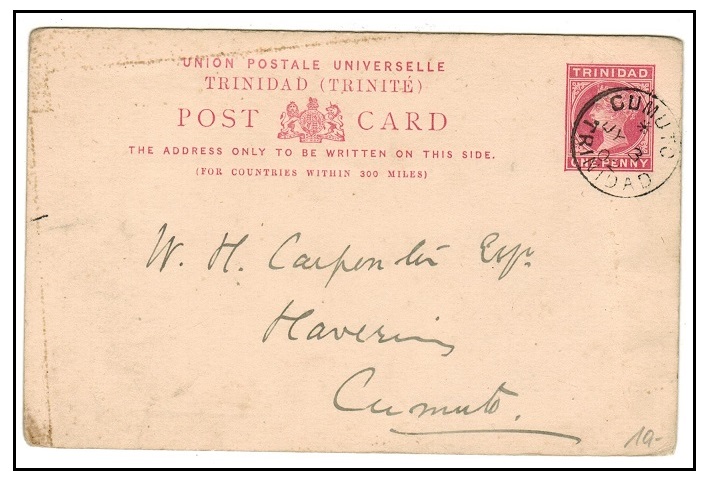 UNION POSTALE UNIVERSELLE
TRINIDAD (TRINITÉ)
POST CARD
THE ADDRESS ONLY TO BE WRITTEN ON THIS SIDE.
(FOR COUNTRIES WITHIN 300 MILES)
TRINIDAD
ONE PENNY
CUMUTO
*
JY 3
TRINIDAD
W. H. Carpenter Esqr
Cumuto.
19-